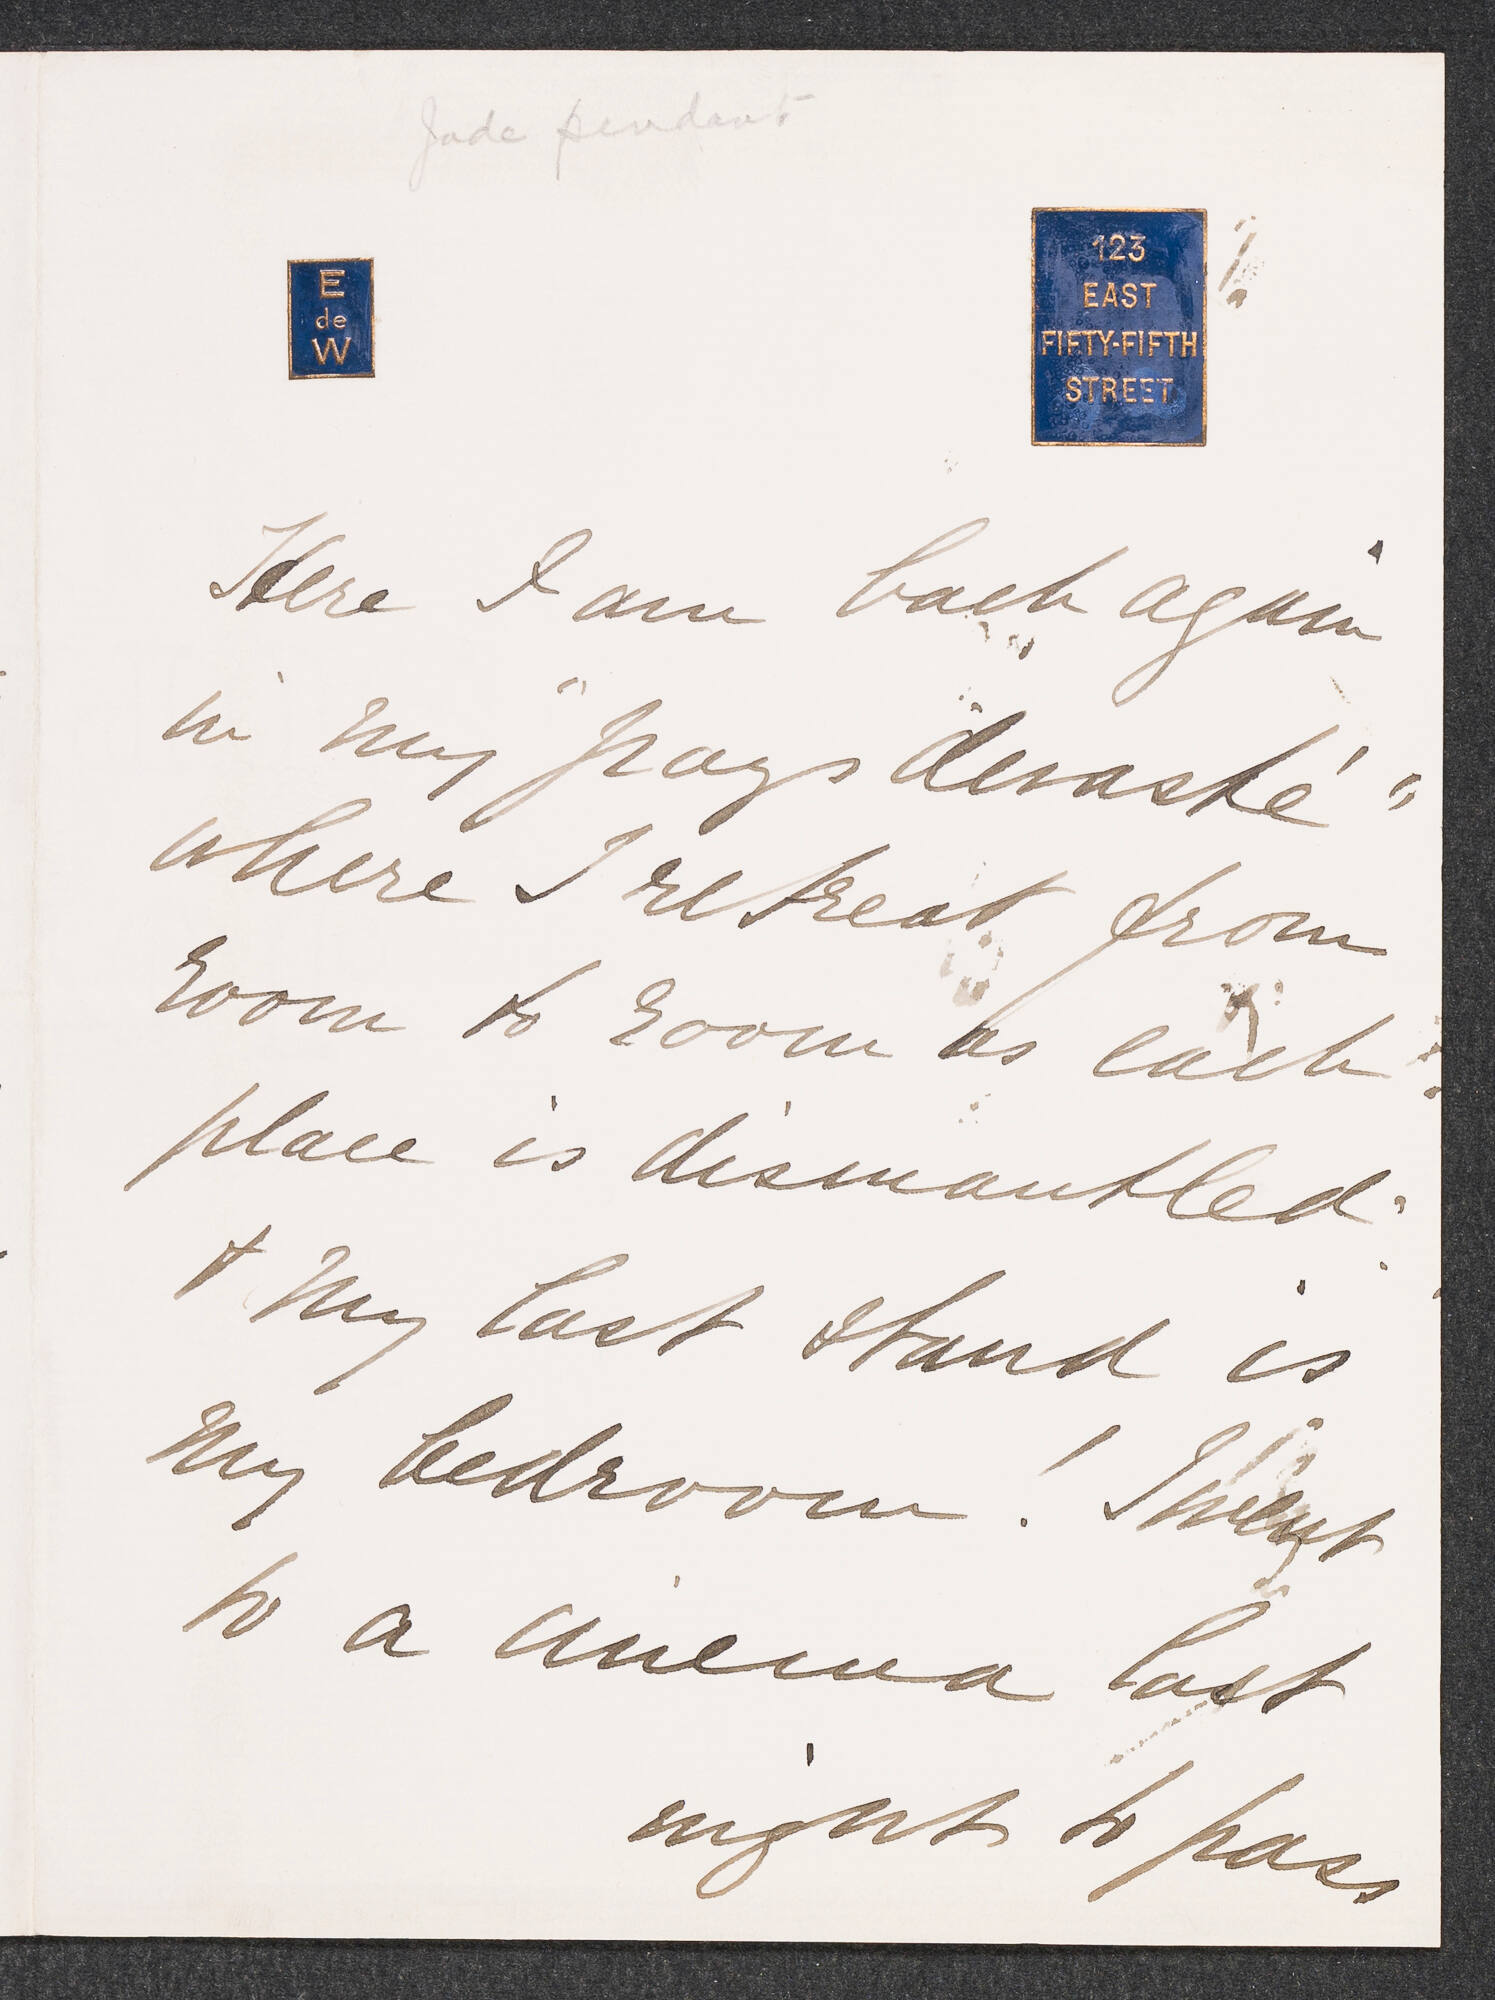 Jade pendant
E
de
W
123
EAST
FIFTY-FIFTH
STREET
Here I am back again
in my "pays dévasté"
where I retreat from
room to room as each
place is dismantled
& my last stand is
my bedroom! I went
to a cinema last
night to pass